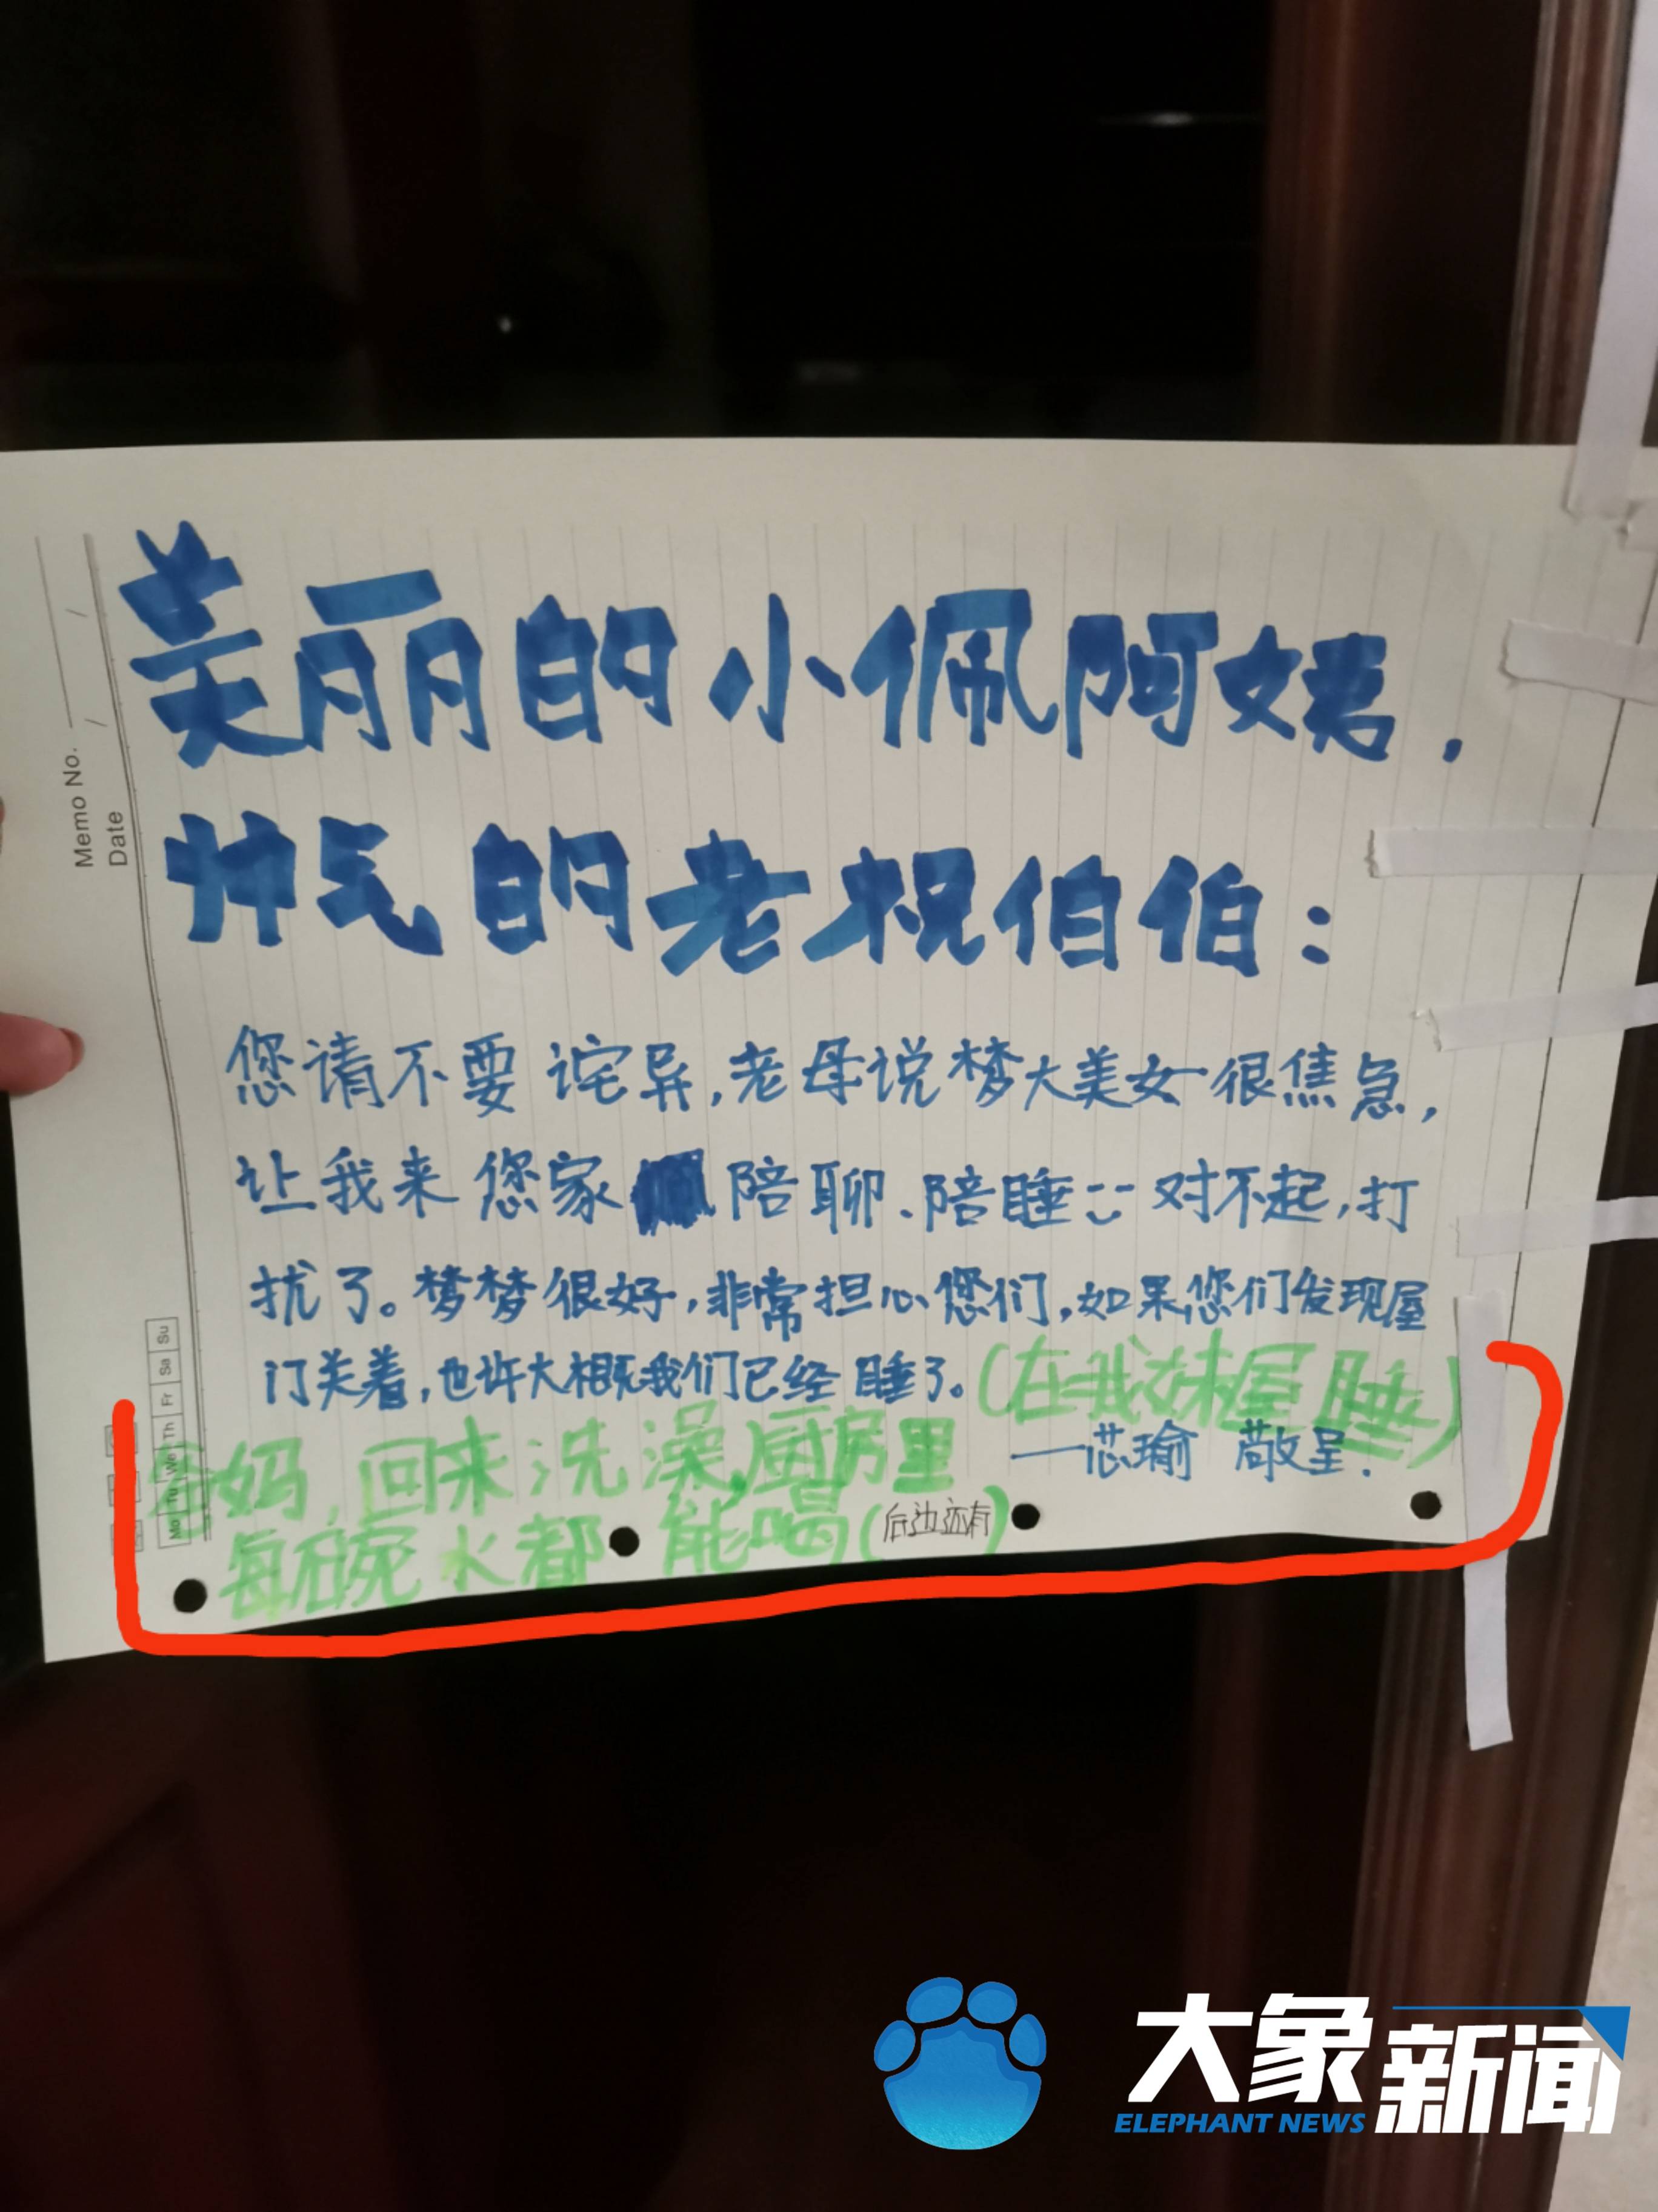 美丽的小佩阿姨，
帅气的老祝伯伯：
您请不要诧异，老母说梦大美女很焦急，
让我来您家陪聊、陪睡 对不起，打
扰了。梦梦很好，非常担心您们，如果您们发现屋
门关着，也许大概我们已经睡了。(在我妹屋睡)
——芯瑜 敬呈.
爸妈，回来洗澡，厨房里
每碗水都能喝(后边还有)
Memo No.
Date
Mo Tu We Th Fr Sa Su
大象新闻
ELEPHANT NEWS